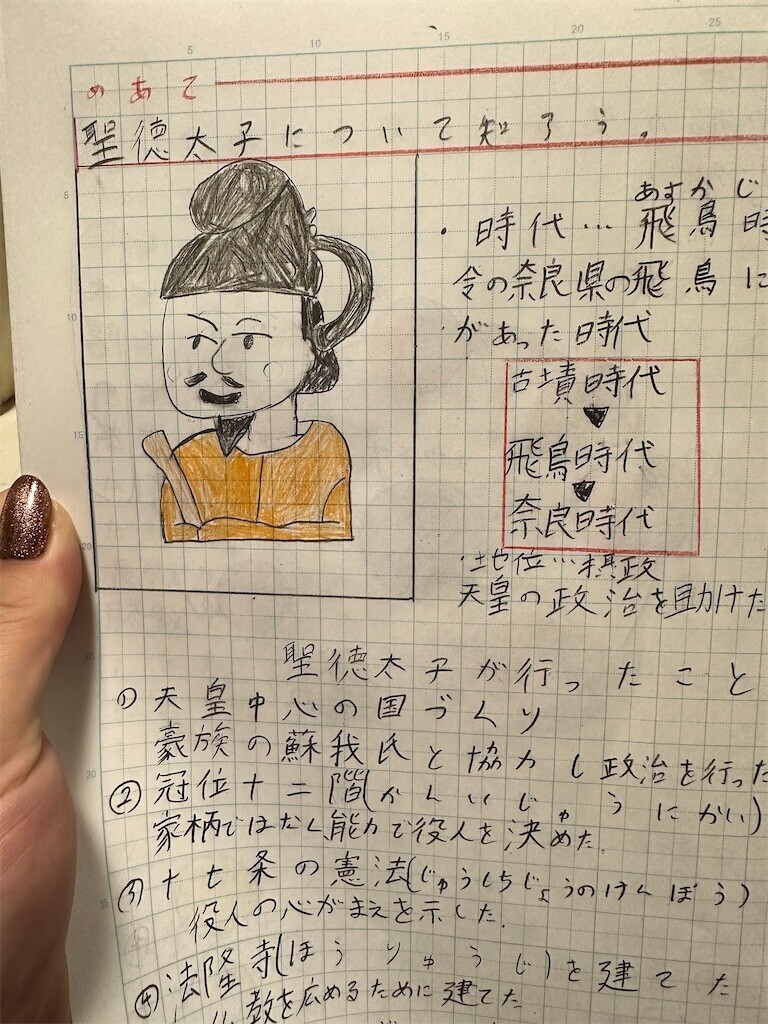 5 10 15 20 25
めあて
聖徳太子について知ろう。
あすかじ
・時代…飛鳥時
今の奈良県の飛鳥に
があった時代
古墳時代
▼
飛鳥時代
▼
奈良時代
・地位…摂政
天皇の政治を助けた
聖徳太子が行ったこと
① 天皇中心の国づくり
豪族の蘇我氏と協力し政治を行った
② 冠位十二階(かんいじゅうにかい)
家柄ではなく能力で役人を決めた。
③ 十七条の憲法(じゅうしちじょうのけんぽう)
役人の心がまえを示した。
④ 法隆寺(ほうりゅうじ)を建てた
教を広めるために建てた
5
10
15
20
30
35